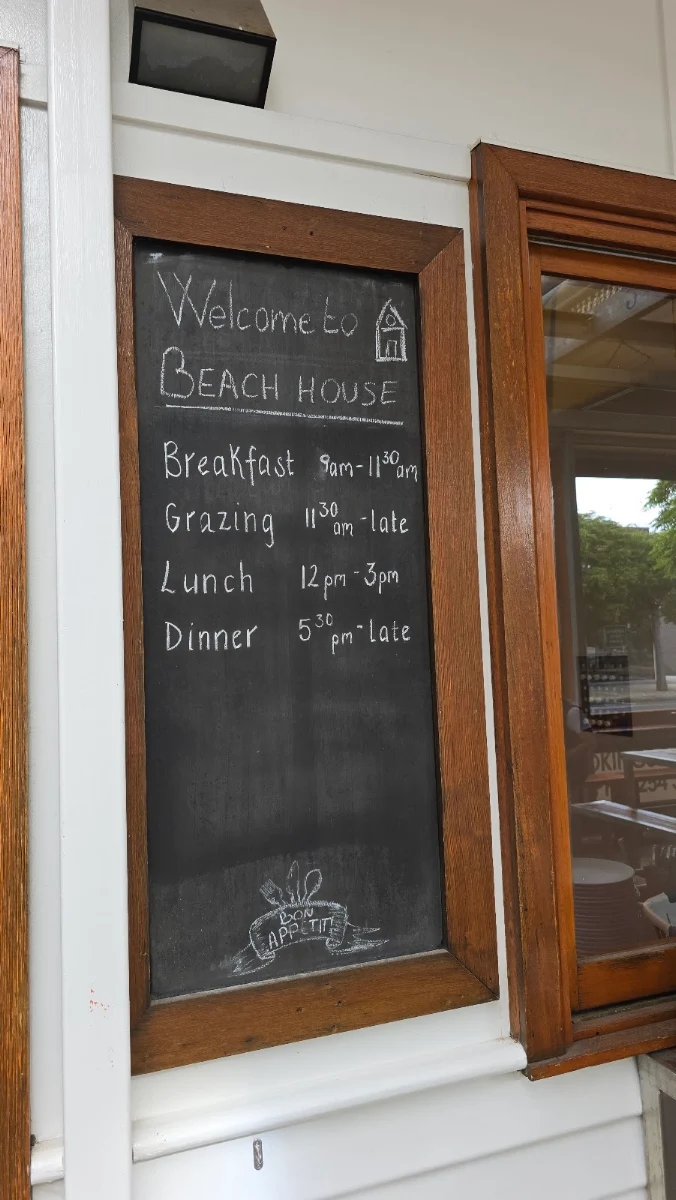 Welcome to
BEACH HOUSE
Breakfast 9am-11 30 am
Grazing 11 30 am - late
Lunch 12pm - 3pm
Dinner 5 30 pm - late
BON
APPETIT!